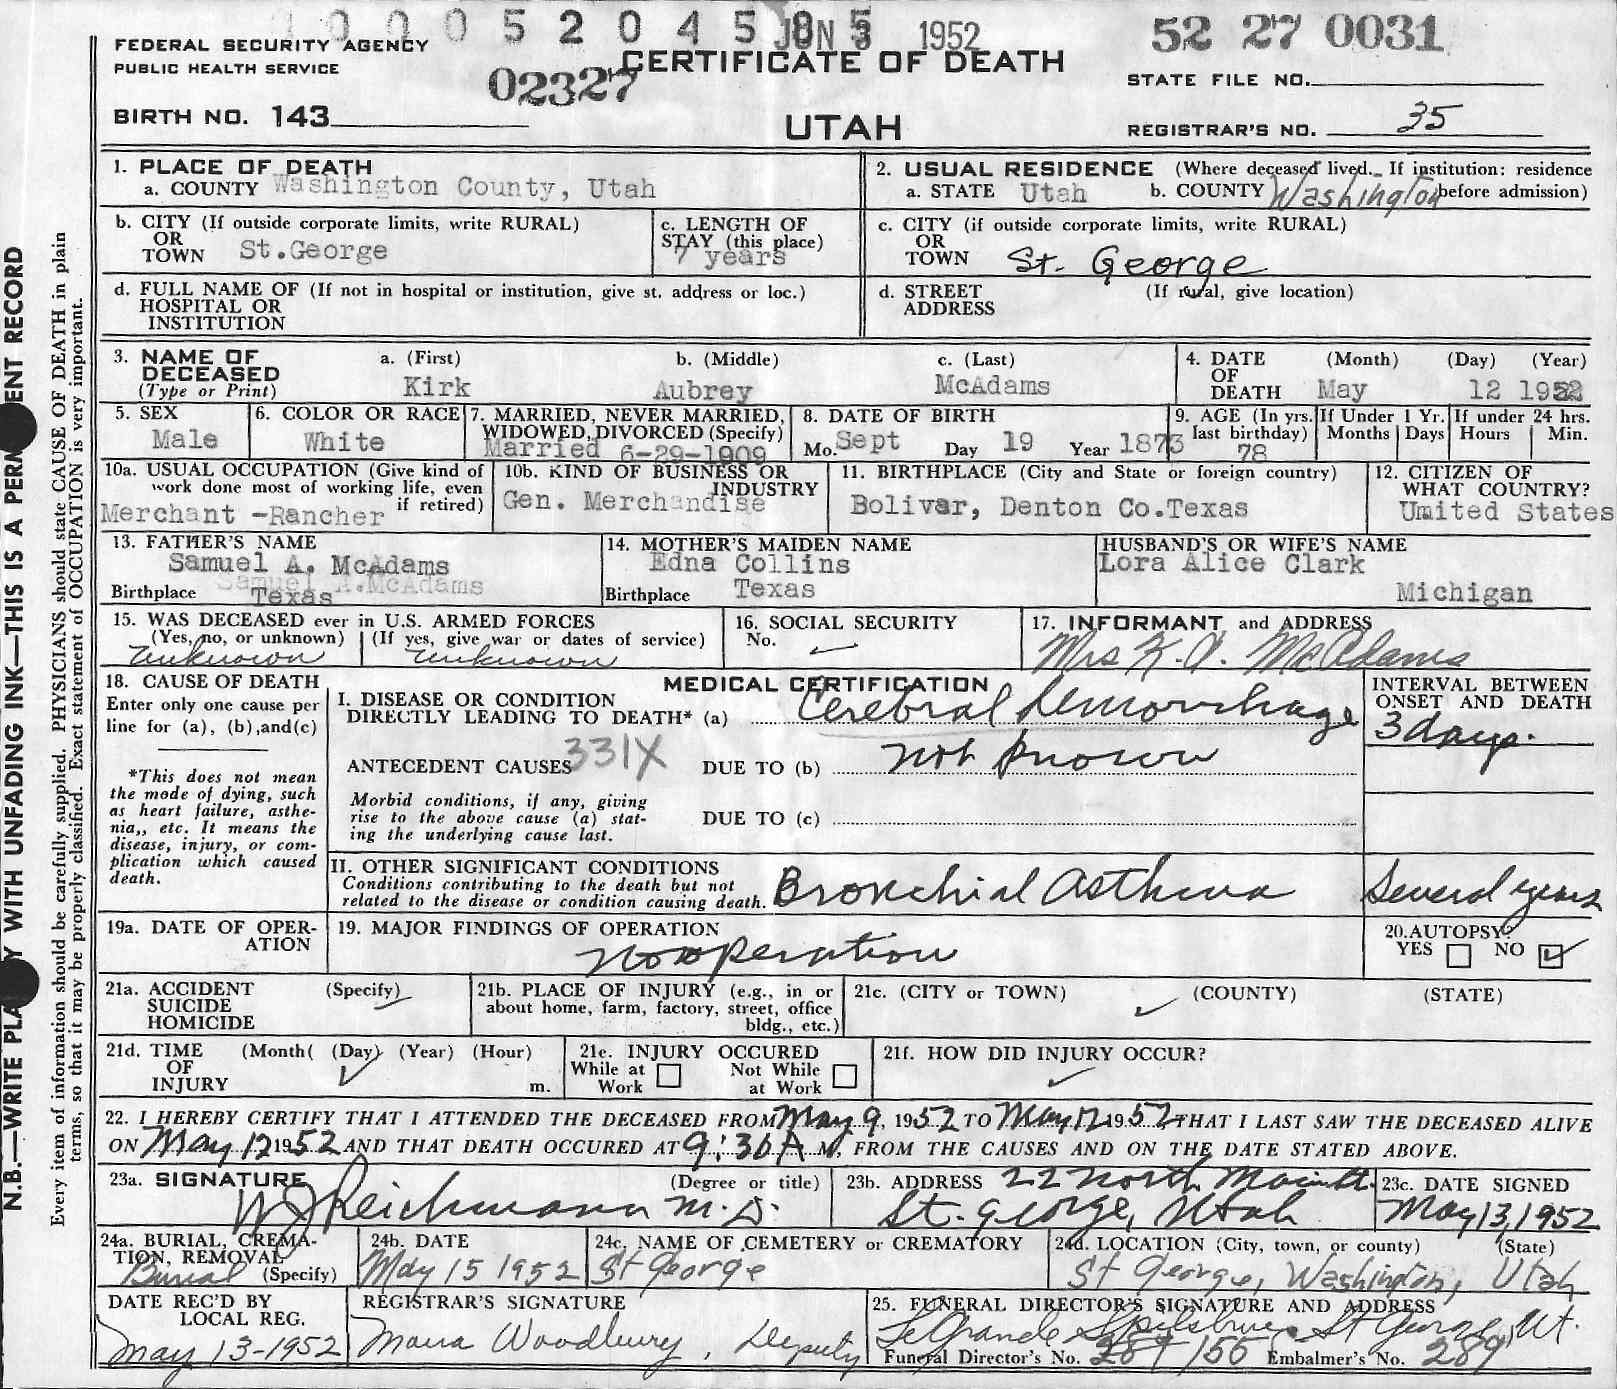 0 0 0 0 5 2 0 4 5 8 5 JUN 3 1952 52 27 0031
FEDERAL SECURITY AGENCY
PUBLIC HEALTH SERVICE
02327
CERTIFICATE OF DEATH
STATE FILE NO.
BIRTH NO. 143
UTAH
REGISTRAR'S NO. 35
1. PLACE OF DEATH
a. COUNTY Washington County, Utah
2. USUAL RESIDENCE (Where deceased lived. If institution: residence
a. STATE Utah b. COUNTY Washington before admission)
b. CITY (If outside corporate limits, write RURAL)
OR
TOWN St.George
c. LENGTH OF
STAY (this place)
7 years
c. CITY (if outside corporate limits, write RURAL)
OR
TOWN St. George
d. FULL NAME OF (If not in hospital or institution, give st. address or loc.)
HOSPITAL OR
INSTITUTION
d. STREET (If rural, give location)
ADDRESS
3. NAME OF DECEASED (Type or Print)
a. (First) b. (Middle) c. (Last)
Kirk Aubrey McAdams
4. DATE OF DEATH (Month) (Day) (Year)
May 12 1952
5. SEX
Male
6. COLOR OR RACE
White
7. MARRIED, NEVER MARRIED,
WIDOWED, DIVORCED (Specify)
Married 6-29-1909
8. DATE OF BIRTH
Mo. Sept Day 19 Year 1873
9. AGE (In yrs. last birthday)
78
If Under 1 Yr.
Months Days
If under 24 hrs.
Hours Min.
10a. USUAL OCCUPATION (Give kind of
work done most of working life, even
if retired)
Merchant -Rancher
10b. KIND OF BUSINESS OR
INDUSTRY
Gen. Merchandise
11. BIRTHPLACE (City and State or foreign country)
Bolivar, Denton Co.Texas
12. CITIZEN OF
WHAT COUNTRY?
United States
13. FATHER'S NAME
Samuel A. McAdams
Samuel A.McAdams
Birthplace Texas
14. MOTHER'S MAIDEN NAME
Edna Collins
Birthplace Texas
HUSBAND'S OR WIFE'S NAME
Lora Alice Clark
Michigan
15. WAS DECEASED ever in U.S. ARMED FORCES
(Yes, no, or unknown) (If yes, give war or dates of service)
Unknown Unknown
16. SOCIAL SECURITY
No.
17. INFORMANT and ADDRESS
Mrs K. A. McAdams
18. CAUSE OF DEATH
Enter only one cause per
line for (a), (b),and(c)
*This does not mean
the mode of dying, such
as heart failure, asthe-
nia,, etc. It means the
disease, injury, or com-
plication which caused
death.
MEDICAL CERTIFICATION
I. DISEASE OR CONDITION
DIRECTLY LEADING TO DEATH* (a) Cerebral Hemorrhage
ANTECEDENT CAUSES 331X DUE TO (b) not known
Morbid conditions, if any, giving
rise to the above cause (a) stat-
ing the underlying cause last.
DUE TO (c)
INTERVAL BETWEEN
ONSET AND DEATH
3 days.
II. OTHER SIGNIFICANT CONDITIONS
Conditions contributing to the death but not
related to the disease or condition causing death.
Bronchial Asthma
Several years
19a. DATE OF OPER-
ATION
19. MAJOR FINDINGS OF OPERATION
No operation
20.AUTOPSY?
YES NO
21a. ACCIDENT (Specify)
SUICIDE
HOMICIDE
21b. PLACE OF INJURY (e.g., in or
about home, farm, factory, street, office
bldg., etc.)
21c. (CITY or TOWN) (COUNTY) (STATE)
21d. TIME (Month( (Day) (Year) (Hour)
OF
INJURY m.
21e. INJURY OCCURED
While at Work Not While at Work
21f. HOW DID INJURY OCCUR?
22. I HEREBY CERTIFY THAT I ATTENDED THE DECEASED FROM May 9, 1952 TO May 12 1952 THAT I LAST SAW THE DECEASED ALIVE
ON May 12 1952 AND THAT DEATH OCCURED AT 9:30 A M, FROM THE CAUSES AND ON THE DATE STATED ABOVE.
23a. SIGNATURE (Degree or title)
W J Reichmann M.D.
23b. ADDRESS 22 North Main St.
St. George, Utah
23c. DATE SIGNED
May 13, 1952
24a. BURIAL, CREMA-
TION, REMOVAL
Burial (Specify)
24b. DATE
May 15 1952
24c. NAME OF CEMETERY or CREMATORY
St George
24d. LOCATION (City, town, or county) (State)
St George, Washington, Utah
DATE REC'D BY
LOCAL REG.
May 13-1952
REGISTRAR'S SIGNATURE
Mona Woodbury, Deputy
25. FUNERAL DIRECTOR'S SIGNATURE AND ADDRESS
LeGrande Spilsbury St George, Ut.
Funeral Director's No. 155 Embalmer's No. 289
N.B.—WRITE PLAINLY WITH UNFADING INK—THIS IS A PERMANENT RECORD
Every item of information should be carefully supplied. PHYSICIANS should state CAUSE OF DEATH in plain
terms, so that it may be properly classified. Exact statement of OCCUPATION is very important.